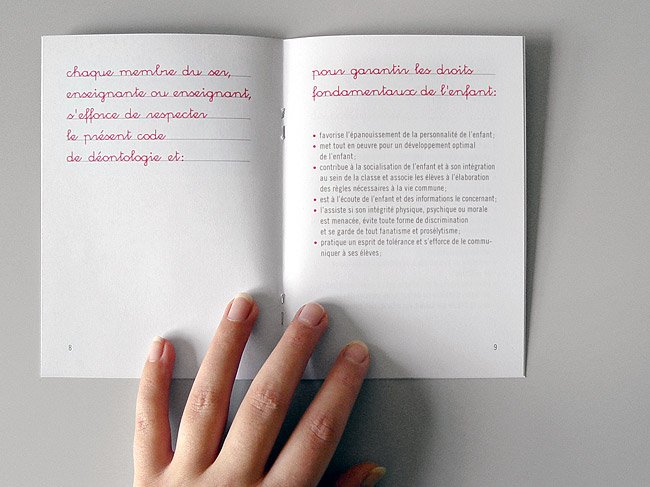 chaque membre du ser,
enseignante ou enseignant,
s'efforce de respecter
le présent code
de déontologie et:
6
pour garantir les droits
fondamentaux de l'enfant:
• favorise l'épanouissement de la personnalité de l'enfant;
• met tout en oeuvre pour un développement optimal
de l'enfant;
• contribue à la socialisation de l'enfant et à son intégration
au sein de la classe et associe les élèves à l'élaboration
des règles nécessaires à la vie commune;
• est à l'écoute de l'enfant et des informations le concernant;
• l'assiste si son intégrité physique, psychique ou morale
est menacée, évite toute forme de discrimination
et se garde de tout fanatisme et prosélytisme;
• pratique un esprit de tolérance et s'efforce de le commu-
niquer à ses élèves;
9